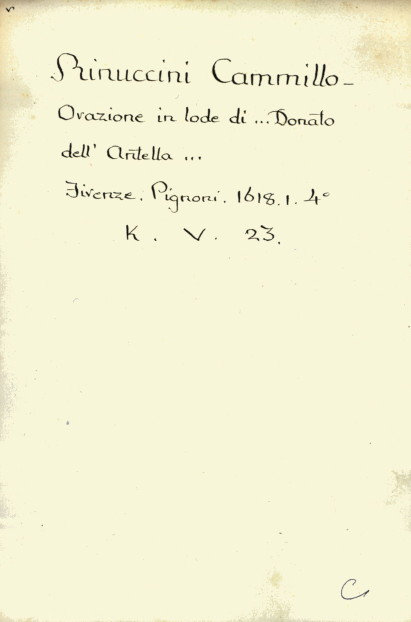 Rinuccini Cammillo -
Orazione in lode di ... Donato
dell' Antella ...
Firenze. Pignoni. 1618. 1. 4°
K. V. 23.